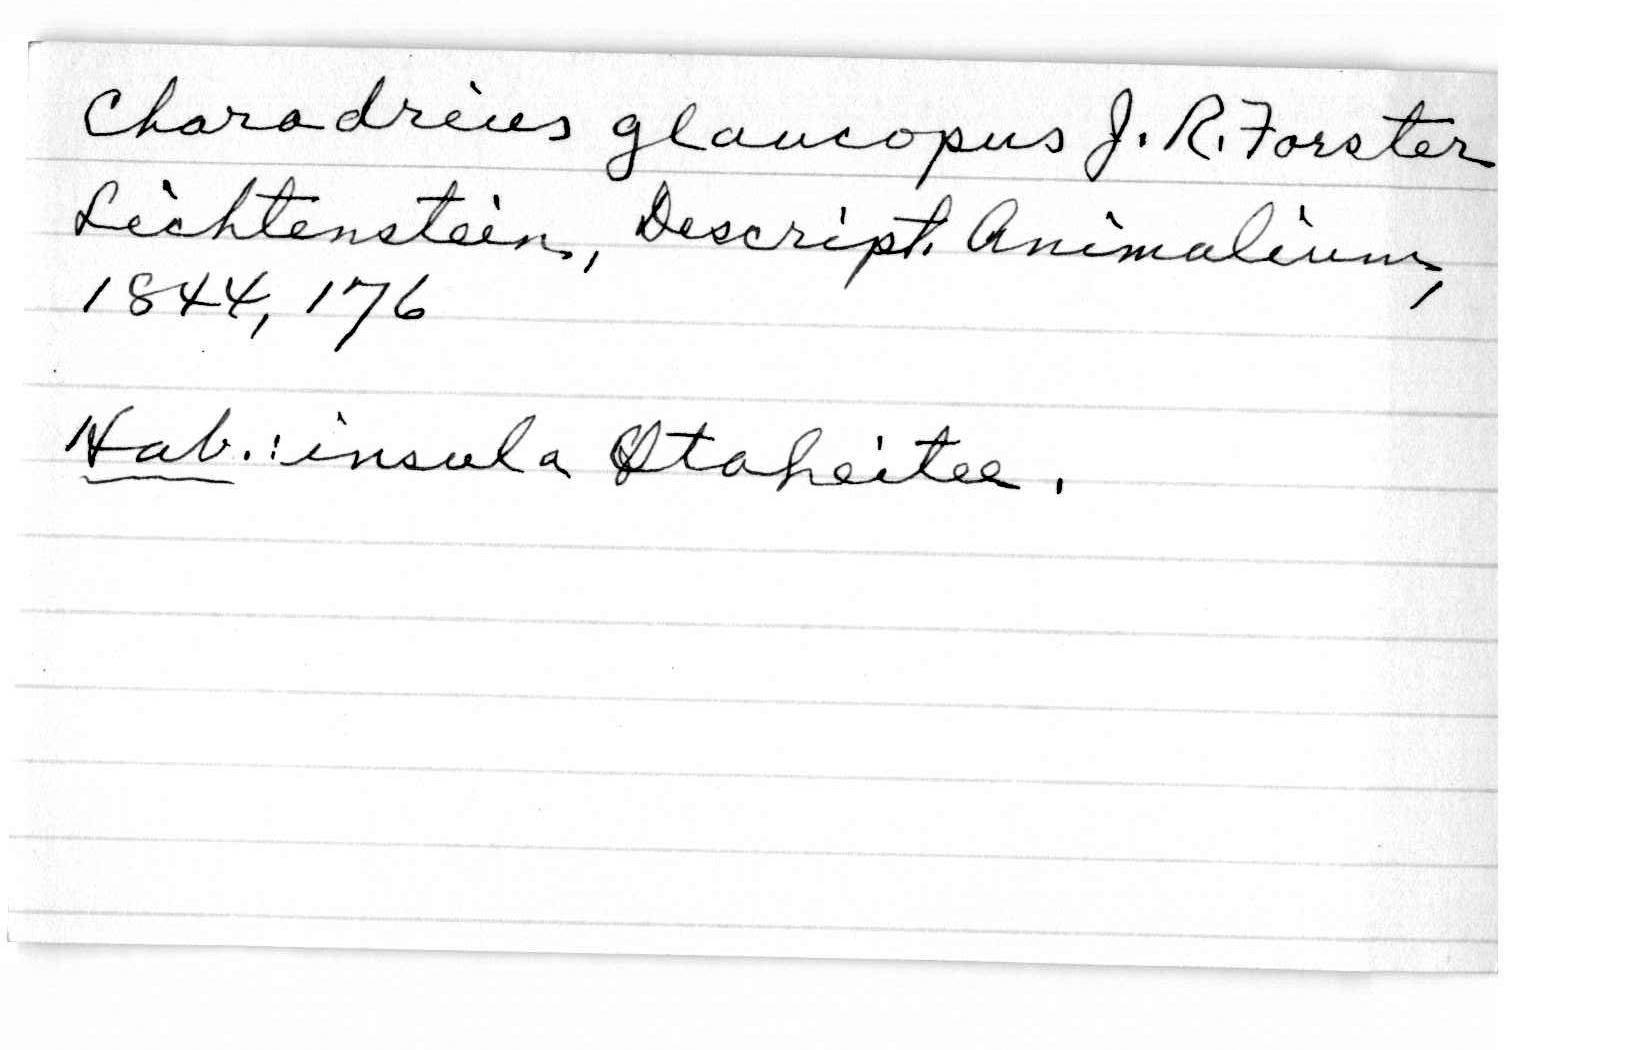 Charadrius glaucopus J. R. Forster
Lichtenstein, Descript. Animalium,
1844, 176
Hab.: insula Otaheitee.